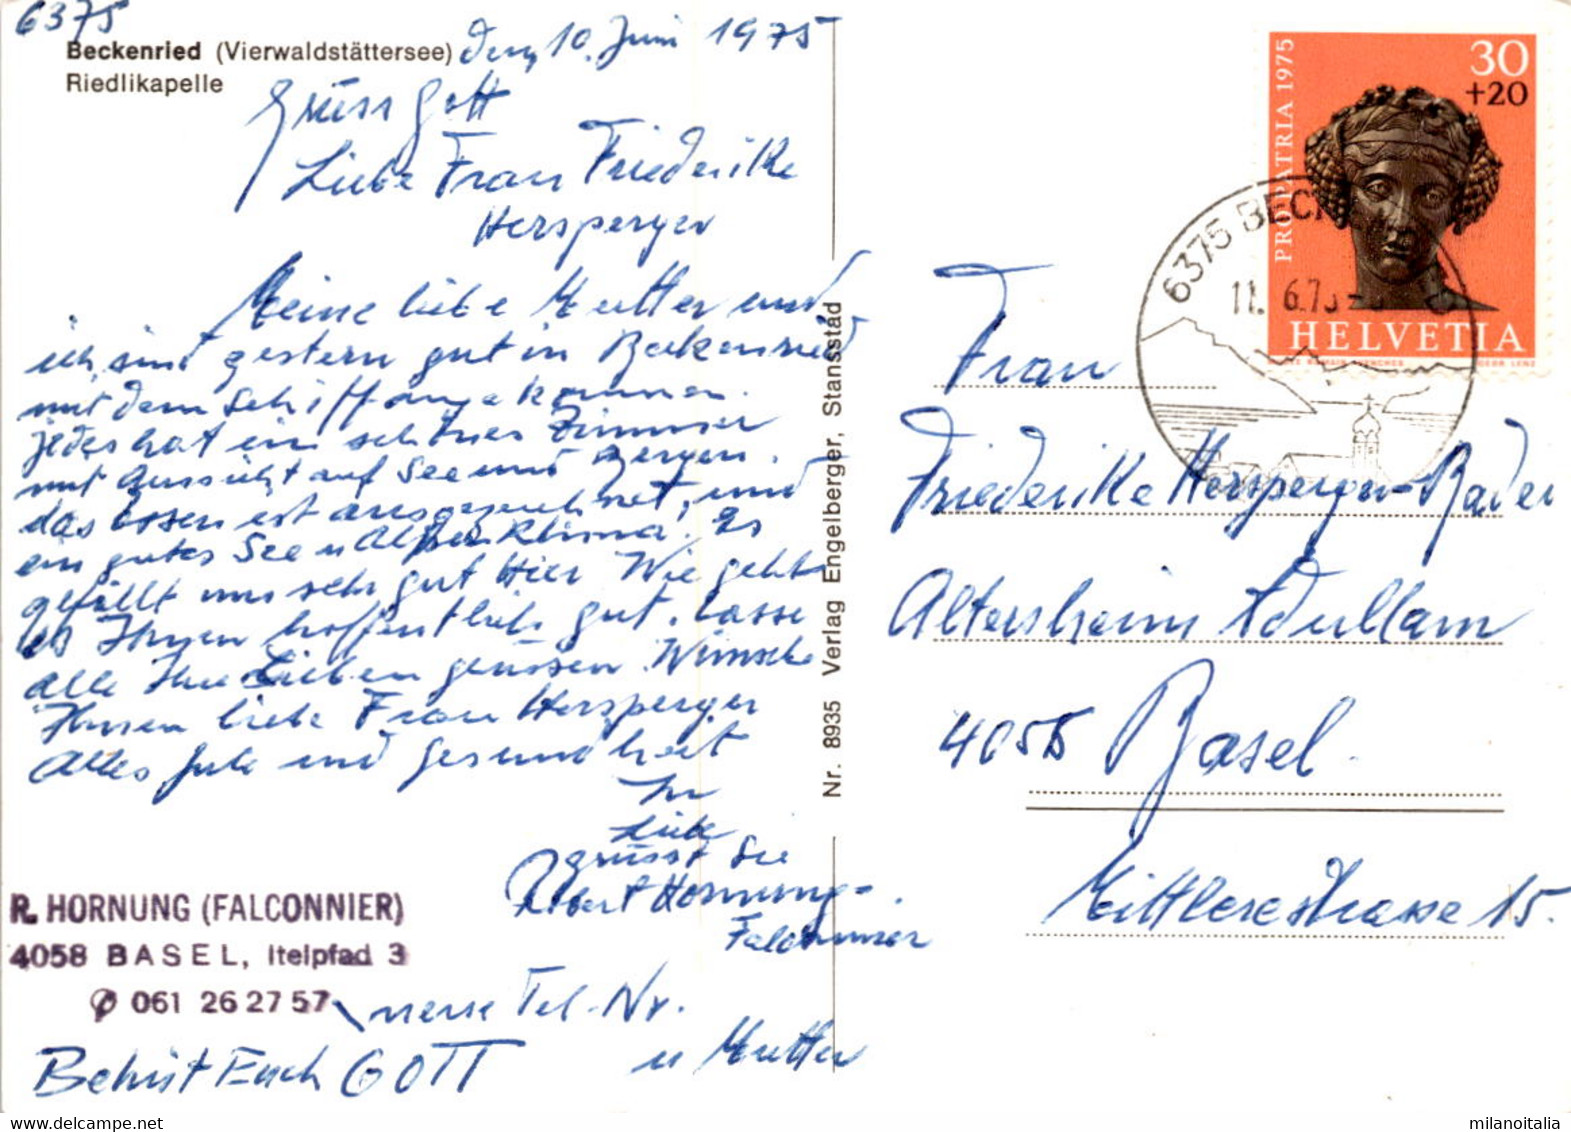 6375
Beckenried (Vierwaldstättersee) den 10. Juni 1975
Riedlikapelle
Grüss Gott
Liebe Frau Friederike
Hersperger
Meine liebe Mutter und
ich sind gestern gut in Beckenried
mit dem Schiff angekommen.
jedes hat ein schönes Zimmer
mit Aussicht auf See und Bergen.
das Essen ist ausgezeichnet, und
ein gutes See u Alpen Klima. Es
gefällt uns sehr gut Hier Wie geht
es Ihnen hoffentlich gut. Lasse
alle Ihre Lieben grüssen. Wünsche
Ihnen liebe Frau Hersperger
Alles gute und gesundheit
Ihr
Liebe
grüsst Sie
Robert Hornung-
Falconnier
u Mutter
R. HORNUNG (FALCONNIER)
4058 BASEL, Itelpfad 3
061 26 27 57 neue Tel-Nr.
Behüt Euch GOTT
Nr. 8935 Verlag Engelberger, Stansstad
PRO PATRIA 1975
30
+20
HELVETIA
6375 BECK
11. 6.75
Frau
Friederike Hersperger-Bader
Altersheim Adullam
4056 Basel.
Mittlerestrasse 15.
milanoitalia